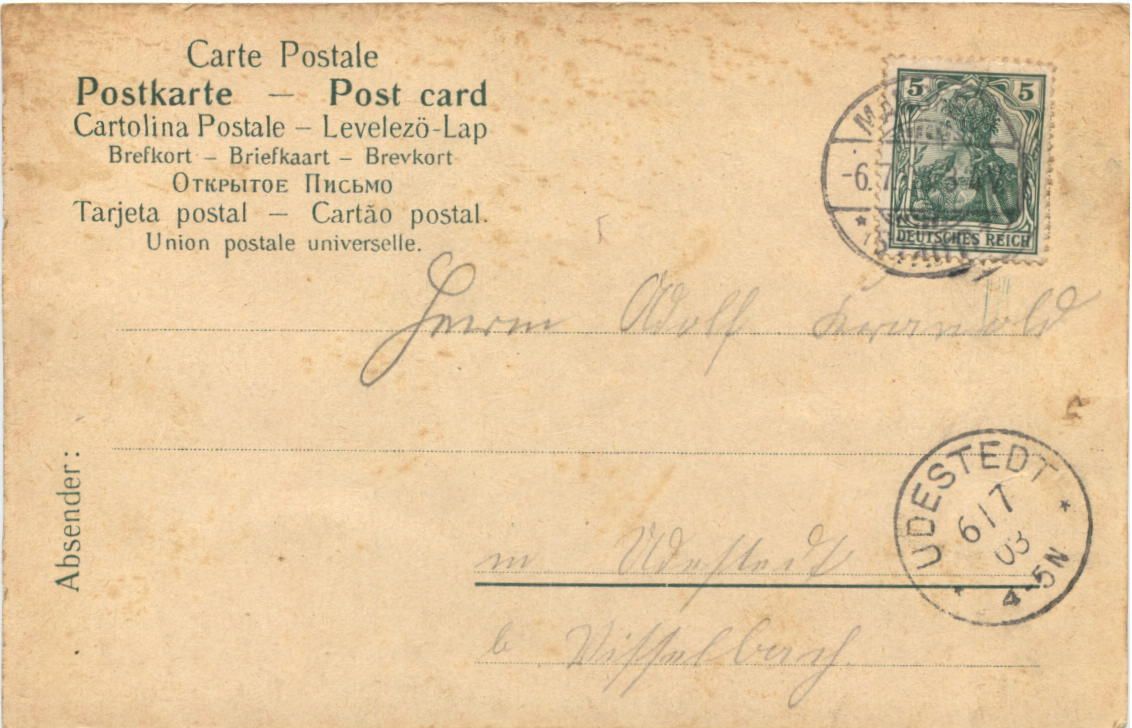 Carte Postale
Postkarte – Post card
Cartolina Postale – Levelező-Lap
Brefkort – Briefkaart – Brevkort
Открытое Письмо
Tarjeta postal – Cartão postal.
Union postale universelle.
5 5
DEUTSCHES REICH
-6.7.
Herrn Adolf
Absender:
UDESTEDT
6/7
03
4-5N
in Udestedt
b. Vippelbach.